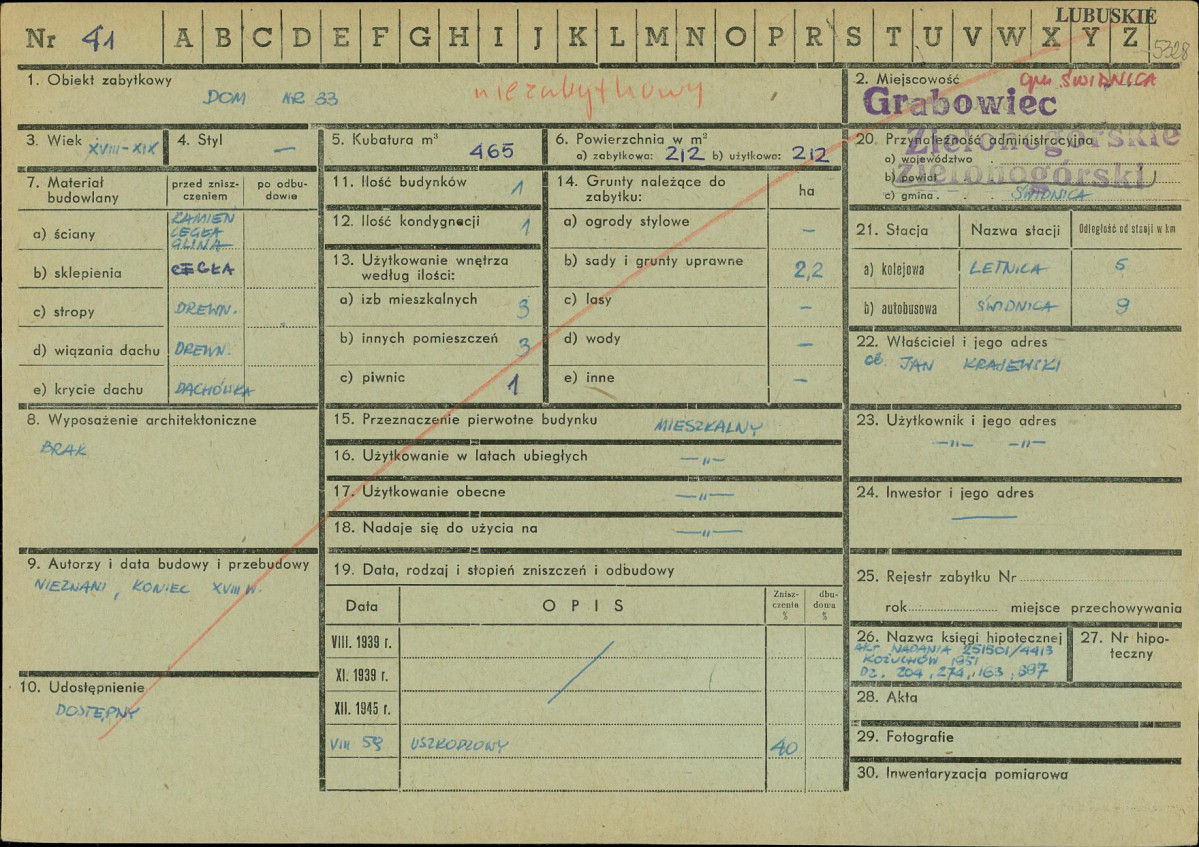 LUBUSKIE
Nr 41 A B C D E F G H I J K L M N O P R S T U V W X Y Z
5328
1. Obiekt zabytkowy
DOM NR 33
niezabytkowy
2. Miejscowość gm. ŚWIDNICA
Grabowiec
3. Wiek XVIII-XIX
4. Styl —
5. Kubatura m³ 465
6. Powierzchnia w m²
a) zabytkowa: 212 b) użytkowa: 212
20. Przynależność administracyjna
Zielonogórskie
a) województwo
b) powiat
Zielonogórski
c) gmina ŚWIDNICA
7. Materiał budowlany
przed znisz-
czeniem
po odbu-
dowie
a) ściany KAMIEŃ
CEGŁA
GLINA
b) sklepienia CEGŁA
c) stropy DREWN. „
d) wiązania dachu DREWN.
e) krycie dachu DACHÓWKA
11. Ilość budynków 1
12. Ilość kondygnacji 1
13. Użytkowanie wnętrza
według ilości:
a) izb mieszkalnych 3
b) innych pomieszczeń 3
c) piwnic 1
14. Grunty należące do
zabytku:
ha
a) ogrody stylowe —
b) sady i grunty uprawne 2,2
c) lasy —
d) wody —
e) inne —
21. Stacja Nazwa stacji Odległość od stacji w km
a) kolejowa LETNICA 5
b) autobusowa ŚWIDNICA 9
22. Właściciel i jego adres
ob. JAN KRAJEWSKI
8. Wyposażenie architektoniczne
BRAK
15. Przeznaczenie pierwotne budynku MIESZKALNY
16. Użytkowanie w latach ubiegłych —„—
17. Użytkowanie obecne —„—
18. Nadaje się do użycia na —„—
23. Użytkownik i jego adres
—„— —„—
24. Inwestor i jego adres
—
9. Autorzy i data budowy i przebudowy
NIEZNANI, KONIEC XVIII W.
10. Udostępnienie
DOSTĘPNY
19. Data, rodzaj i stopień zniszczeń i odbudowy
Data OPIS Znisz-
czenia
%
dbu-
dowa
%
VIII. 1939 r.
XI. 1939 r.
XII. 1945 r.
VIII 59 USZKODZONY 40
25. Rejestr zabytku Nr
rok miejsce przechowywania
26. Nazwa księgi hipotecznej
AKT NADANIA 251501/4413
KOŻUCHÓW 1951
DZ. 204, 274, 163, 397
27. Nr hipo-
teczny
28. Akta
29. Fotografie
30. Inwentaryzacja pomiarowa